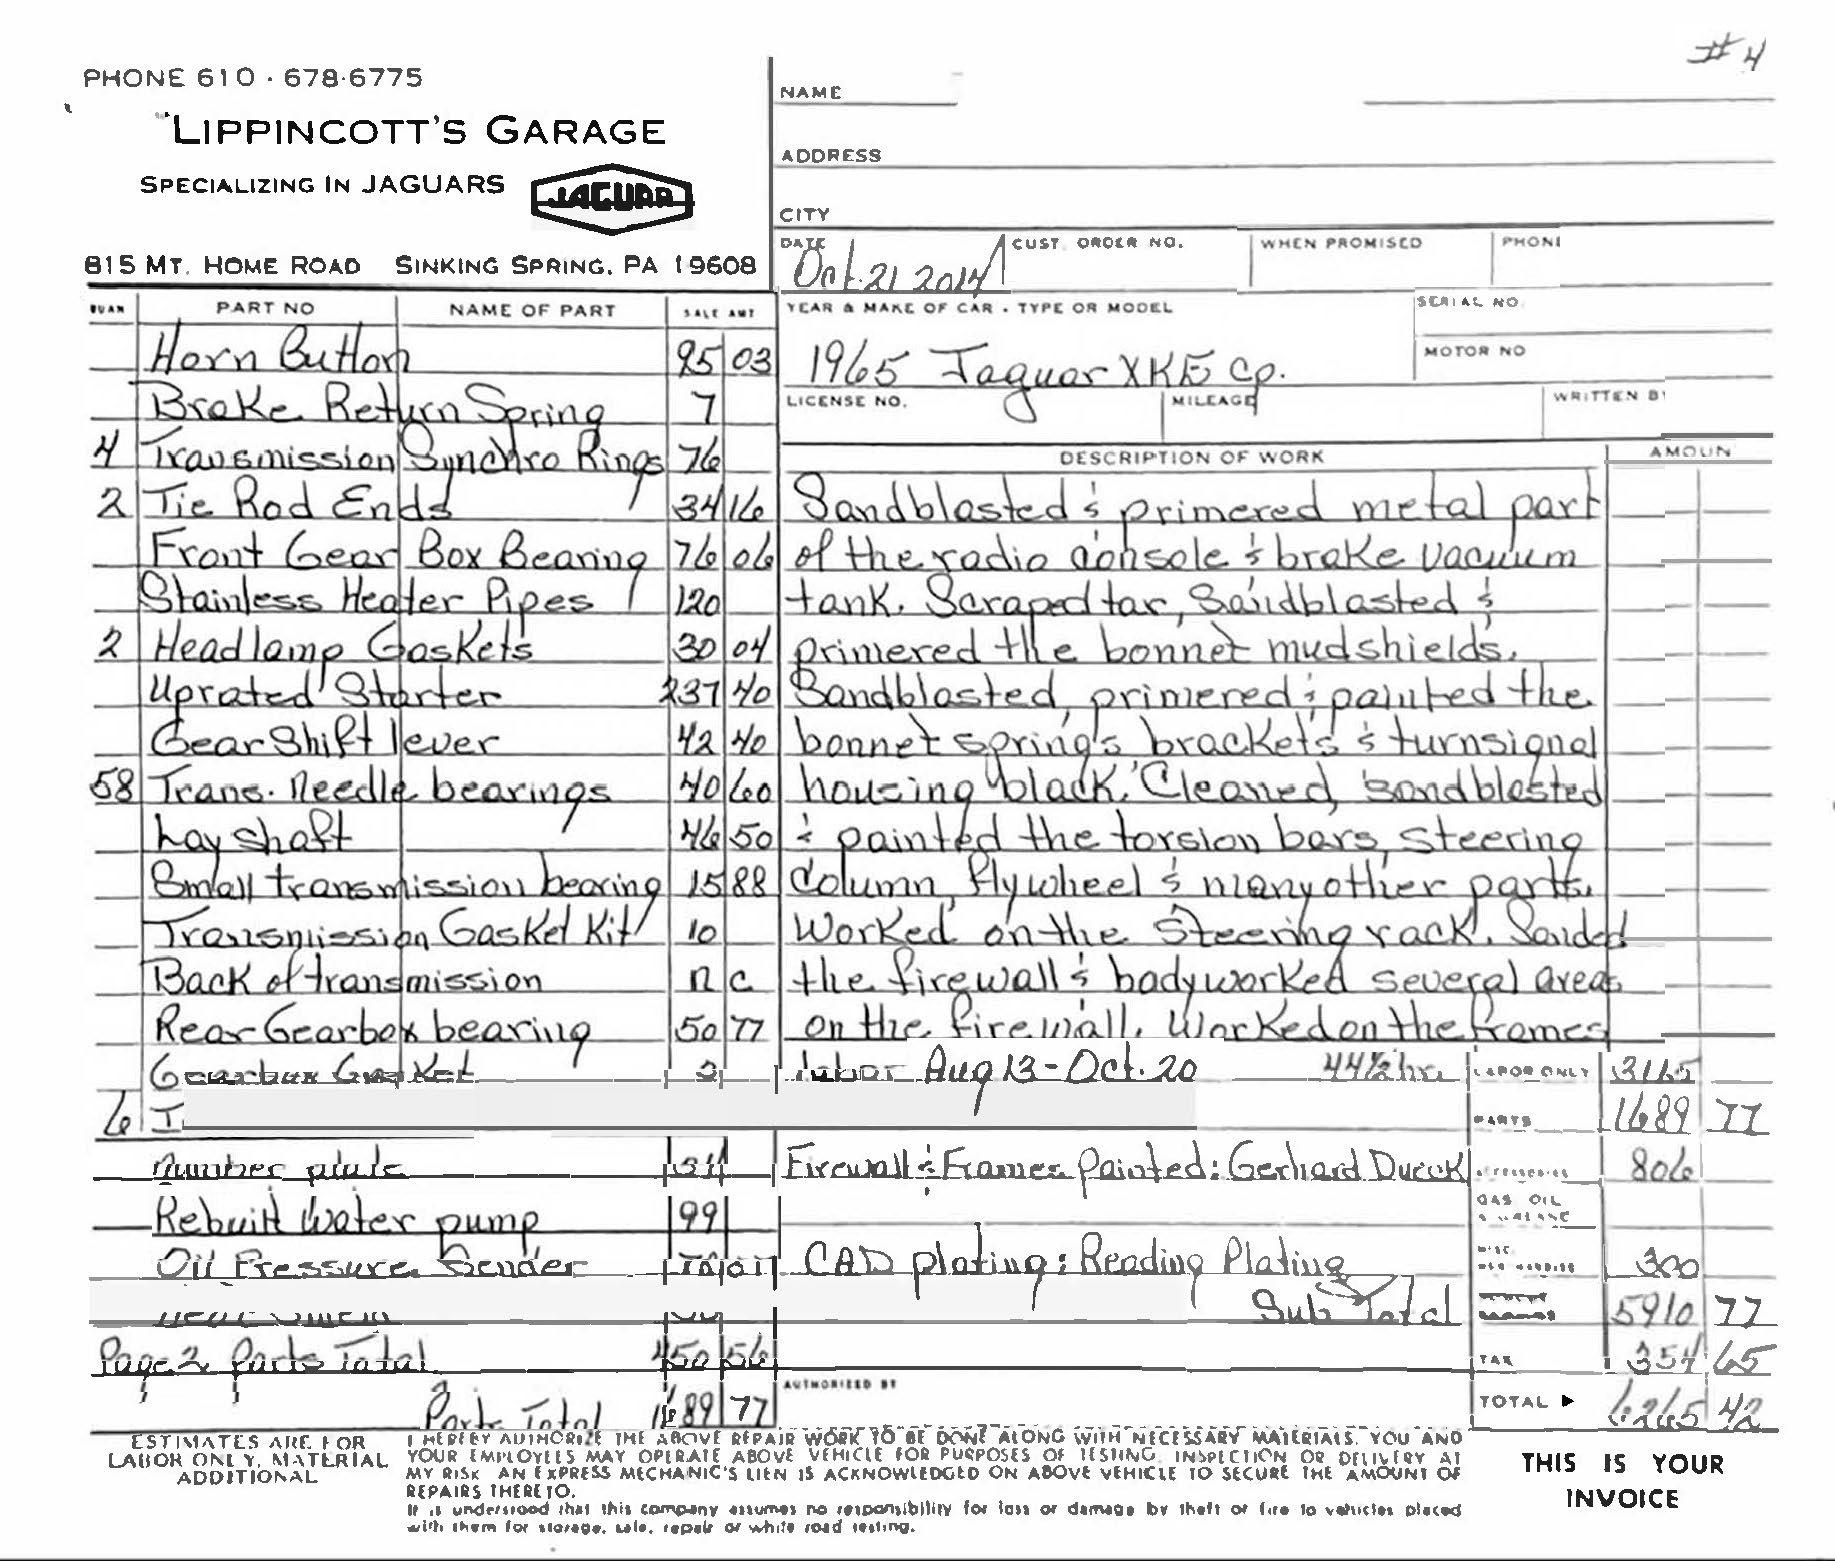 #4
PHONE 610 · 678·6775
LIPPINCOTT'S GARAGE
SPECIALIZING IN JAGUARS
JAGUAR
815 MT. HOME ROAD SINKING SPRING, PA 19608
NAME
ADDRESS
CITY
DATE Oct. 21 2014 CUST. ORDER NO. WHEN PROMISED PHONE
QUAN PART NO NAME OF PART SALE AMT
YEAR & MAKE OF CAR - TYPE OR MODEL SERIAL NO.
1965 Jaguar XKE Cp.
MOTOR NO
LICENSE NO. MILEAGE WRITTEN BY
Horn Button 95 03
Brake Return Spring 7
4 Transmission Synchro Rings 76
2 Tie Rod Ends 34 16
Front Gear Box Bearing 76 06
Stainless Heater Pipes 120
2 Headlamp Gaskets 30 04
Uprated Starter 237 40
Gear Shift lever 42 40
58 Trans. Needle bearings 40 60
Lay shaft 46 50
Small transmission bearing 15 88
Transmission Gasket Kit 10
Back of transmission n c
Rear Gearbox bearing 50 77
Gearbox Gasket
6
Number plate
Rebuilt Water pump 99
Oil Pressure Sender
Page 2 Parts Total 450 56
Parts Total 1689 77
DESCRIPTION OF WORK AMOUN
Sandblasted & primered metal part
of the radio console & brake vacuum
tank. Scraped tar, Sandblasted &
primered the bonnet mudshields.
Sandblasted, primered & painted the
bonnet springs brackets & turnsignal
housing black. Cleaned, sandblasted
& painted the torsion bars, steering
column, flywheel & many other parts.
Worked on the Steering rack. Sanded
the firewall & bodyworked several areas
on the firewall. Worked on the frames
Labor Aug 13 - Oct. 20 44 1/2 hr. LABOR ONLY 3165
PARTS 1689 77
Firewall & Frames Painted: Gerhard Dueck 806
GAS OIL
CAD plating: Reading Plating MISC. 300
Sub Total 5910 77
TAX 354 65
AUTHORIZED BY
TOTAL ▶ 6265 42
ESTIMATES ARE FOR
LABOR ONLY, MATERIAL
ADDITIONAL
I HEREBY AUTHORIZE THE ABOVE REPAIR WORK TO BE DONE ALONG WITH NECESSARY MATERIALS. YOU AND
YOUR EMPLOYEES MAY OPERATE ABOVE VEHICLE FOR PURPOSES OF TESTING, INSPECTION OR DELIVERY AT
MY RISK AN EXPRESS MECHANIC'S LIEN IS ACKNOWLEDGED ON ABOVE VEHICLE TO SECURE THE AMOUNT OF
REPAIRS THERETO.
It is understood that this company assumes no responsibility for loss or damage by theft or fire to vehicles placed
with them for storage, sale, repair or while road testing.
THIS IS YOUR
INVOICE